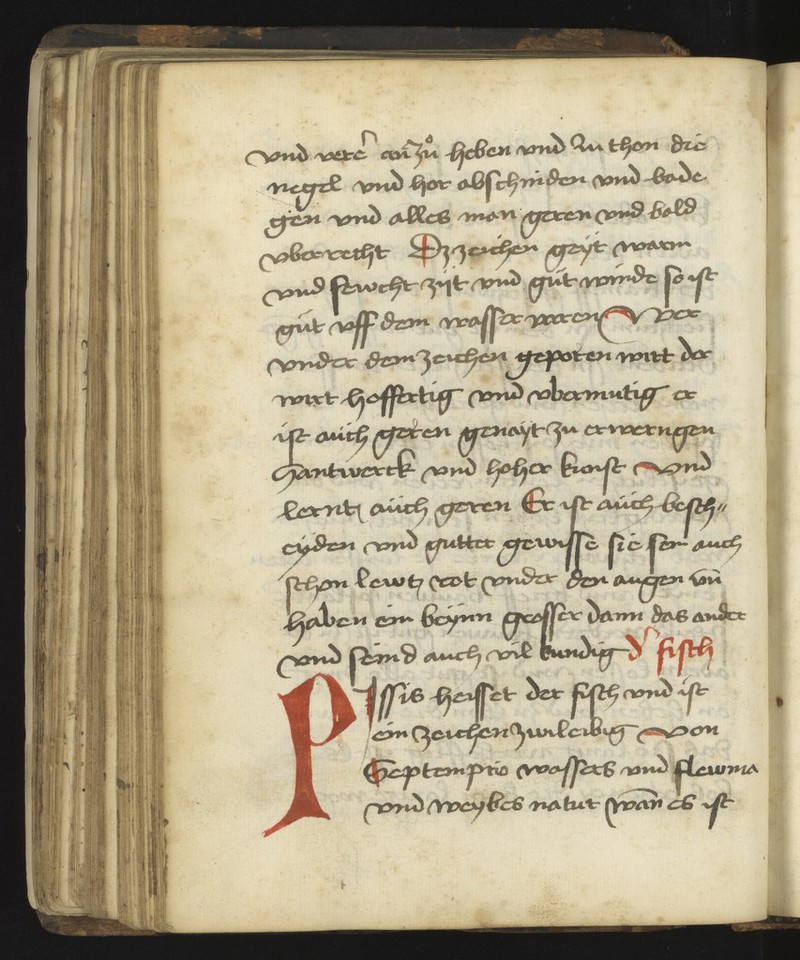 vnd vere an zů heben vnd zu thon die
negel vnd hor abschniden vnd bade
gen vnd alles man geren vnd bald
vberrecht Dz zeichen geyt warm
vnd fewcht zijt vnd gut winde so ist
gut vff dem wasser varen Wer
vnder dem zeichen geporen wirt der
wirt hoffertig vnd vbermutig er
ist auch geren genayt zu erwerngen
Hantwerck vnd hoher kunst Vnd
lerntz auch geren Er ist auch besch〃
eyden vnd gutter gewisse sie sein auch
schon lewtz rot vnder den augen vn̄
haben ein beynn grosser dann das ander
vnd seind auch vil kundig d' fisch
PIssis heisset der fisch vnd ist
ein zeichen zwileibig Von
Septemptrio wassers vnd flewma
vnd weybes natur wan̄ es ist